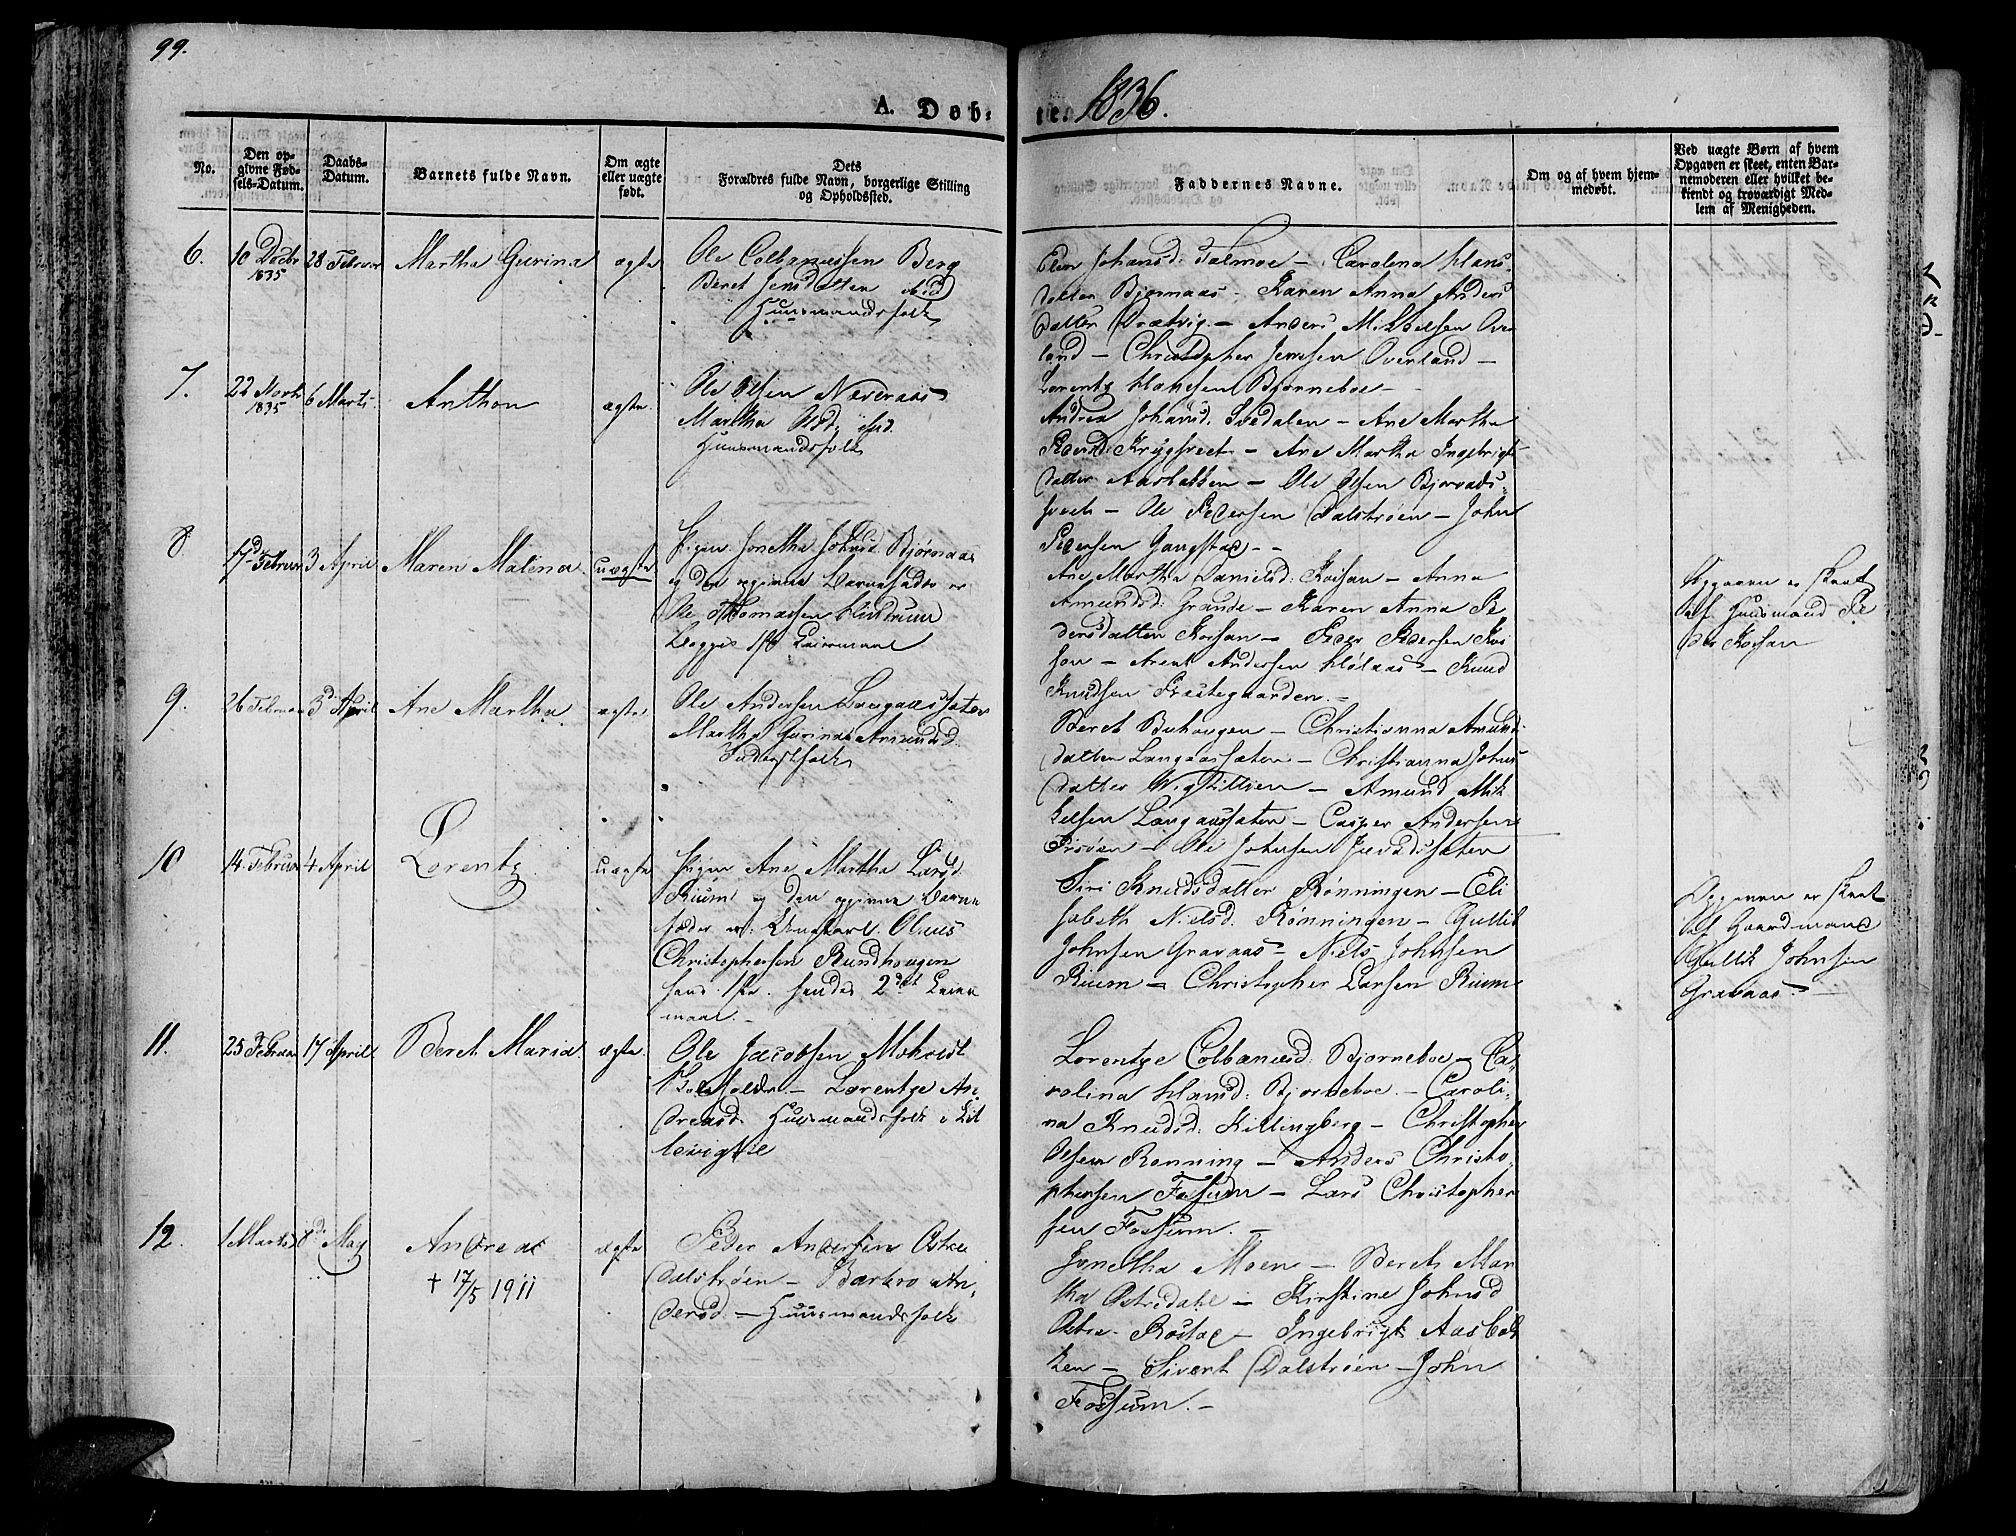 99.
A. Døb-
te. 1836.
No.
Den op-
givne Fød-
sels-Datum.
Daabs-
Datum.
Barnets fulde Navn.
Om ægte
eller uægte
født.
Dets
Forældres fulde Navn, borgerlige Stilling
og Opholdssted.
Faddernes Navne.
Om og af hvem hjem-
medøbt.
Ved uægte Børn af hvem
Opgaven er skeet, enten Bar-
nemoderen eller hvilket be-
kiendt og troværdigt Med-
lem af Menigheden.
6.
10 Decbr
1835
28 Februar
Martha Gurina
ægte
Ole Colbanussen Berg
Beret Jensdatter ibid
Huusmandsfolk
Johansd: Talmoe - Carolina Hans-
datter Bjørnaas - Karen Anna Anders
datter Prætvig - Anders Mikkelsen Over
land - Christopher Jensen Overland -
Lorentz Hansen Bjørneboe -
7.
22
1835
6 Marts
Anthon
ægte.
Ole Olsen Næveraas
Martha ibid.
Huusmandsfolk
Andrea Johansd: Svedalen - Ane Martha
Pedersd: - Ane Martha Ingebrigt
datter Aasbakken - Ole Olsen
Ole Pedersen Dalstrøen - John
Pedersen Gangstad -
8.
17d Februar
3 April
Maren Malena
uægte
Pigen Jonetha Johnsd: Bjørnaas
og den opgivne Barnefader er
Ole Thomassen
Begges 1ste Leiermaal
Ane Martha Danielsd: Korsan - Anna
Amundsd: Grande - Karen Anna Pe
dersdatter Korsan - Peder Pedersen Kor
san - Arent Andersen Hølaas - Knud
Knudsen Prestegaarden -
Opgaven er skeet
af Huusmand Pe
der Korsan
9.
26 Februar
3d April
Ane Martha
ægte
Ole Andersen Langaassæter
Martha Gurina Amundsd:
Beret Buhaugen - Christianna Amund
datter Langaassæter - Christianna Johns
datter - Amund Mik
kelsen Langaassæter - Casper Andersen
- Ole Johnsen
10
14 Februar
4 April
Lorentz
uægte
Pigen Ane Martha Larsd:
Rium og den opgivne Barne
fader er Ungkarl Oluus
Christophersen Rundhaugen
hans 1ste hendes 2det Leier
maal.-
Siri Knudsdatter Rønningen - Eli
sabeth Nielsd: Rønningen - Gullik
Johnsen Gravaas - Niels Johnsen
Rium - Christopher Larsen Rium
Opgaven er skeet
af Gaardmand
Gullik Johnsen
Gravaas -
11.
25 Februar
17 April
Beret Maria
ægte.
Ole Jacobsen Moholdt
- Lorentze An-
dreasd: Huusmandsfolk i Lil
levigtie
Lorentze Colbanusd: Bjørneboe - Ca-
rolina Hansd: Bjørneboe - Caroli-
na Knudsd: Killingberg - Christopher
Olsen Rønning - Anders Christo-
phersen Fossum - Lars Christopher
sen Fossum. -
12.
1 Marts
8de May
Andrea
+ 17/5 1911
ægte
Peder Andersen Østre
Dalstrøen - Barbro An-
dersd. - Huusmandsfolk
Jonetha Moen - Beret Mar
tha Østredahl - Kirstine Johnsd
Østre Rostad - Ingebrigt Aasbak
ken - Sivert Dalstrøen - John
Fossum. -